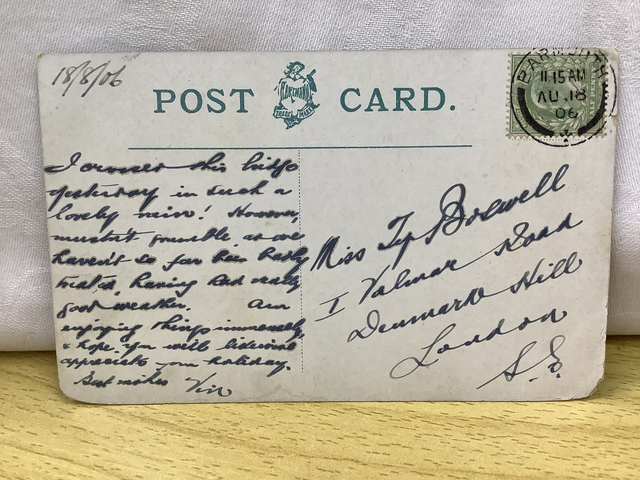 18/8/06
POST CARD.
BARMOUTH
11.15 AM
AU 18
06
I crossed this bridge
yesterday in such a
lovely rain! However,
mustn't grumble, as we
haven't so far been badly
treated, having had really
good weather. Am
enjoying things immensely
& hope you will likewise
appreciate your holiday.
Best wishes Vin
Miss Ty Boswell
1 Valmar Road
Denmark Hill
London
S.E.